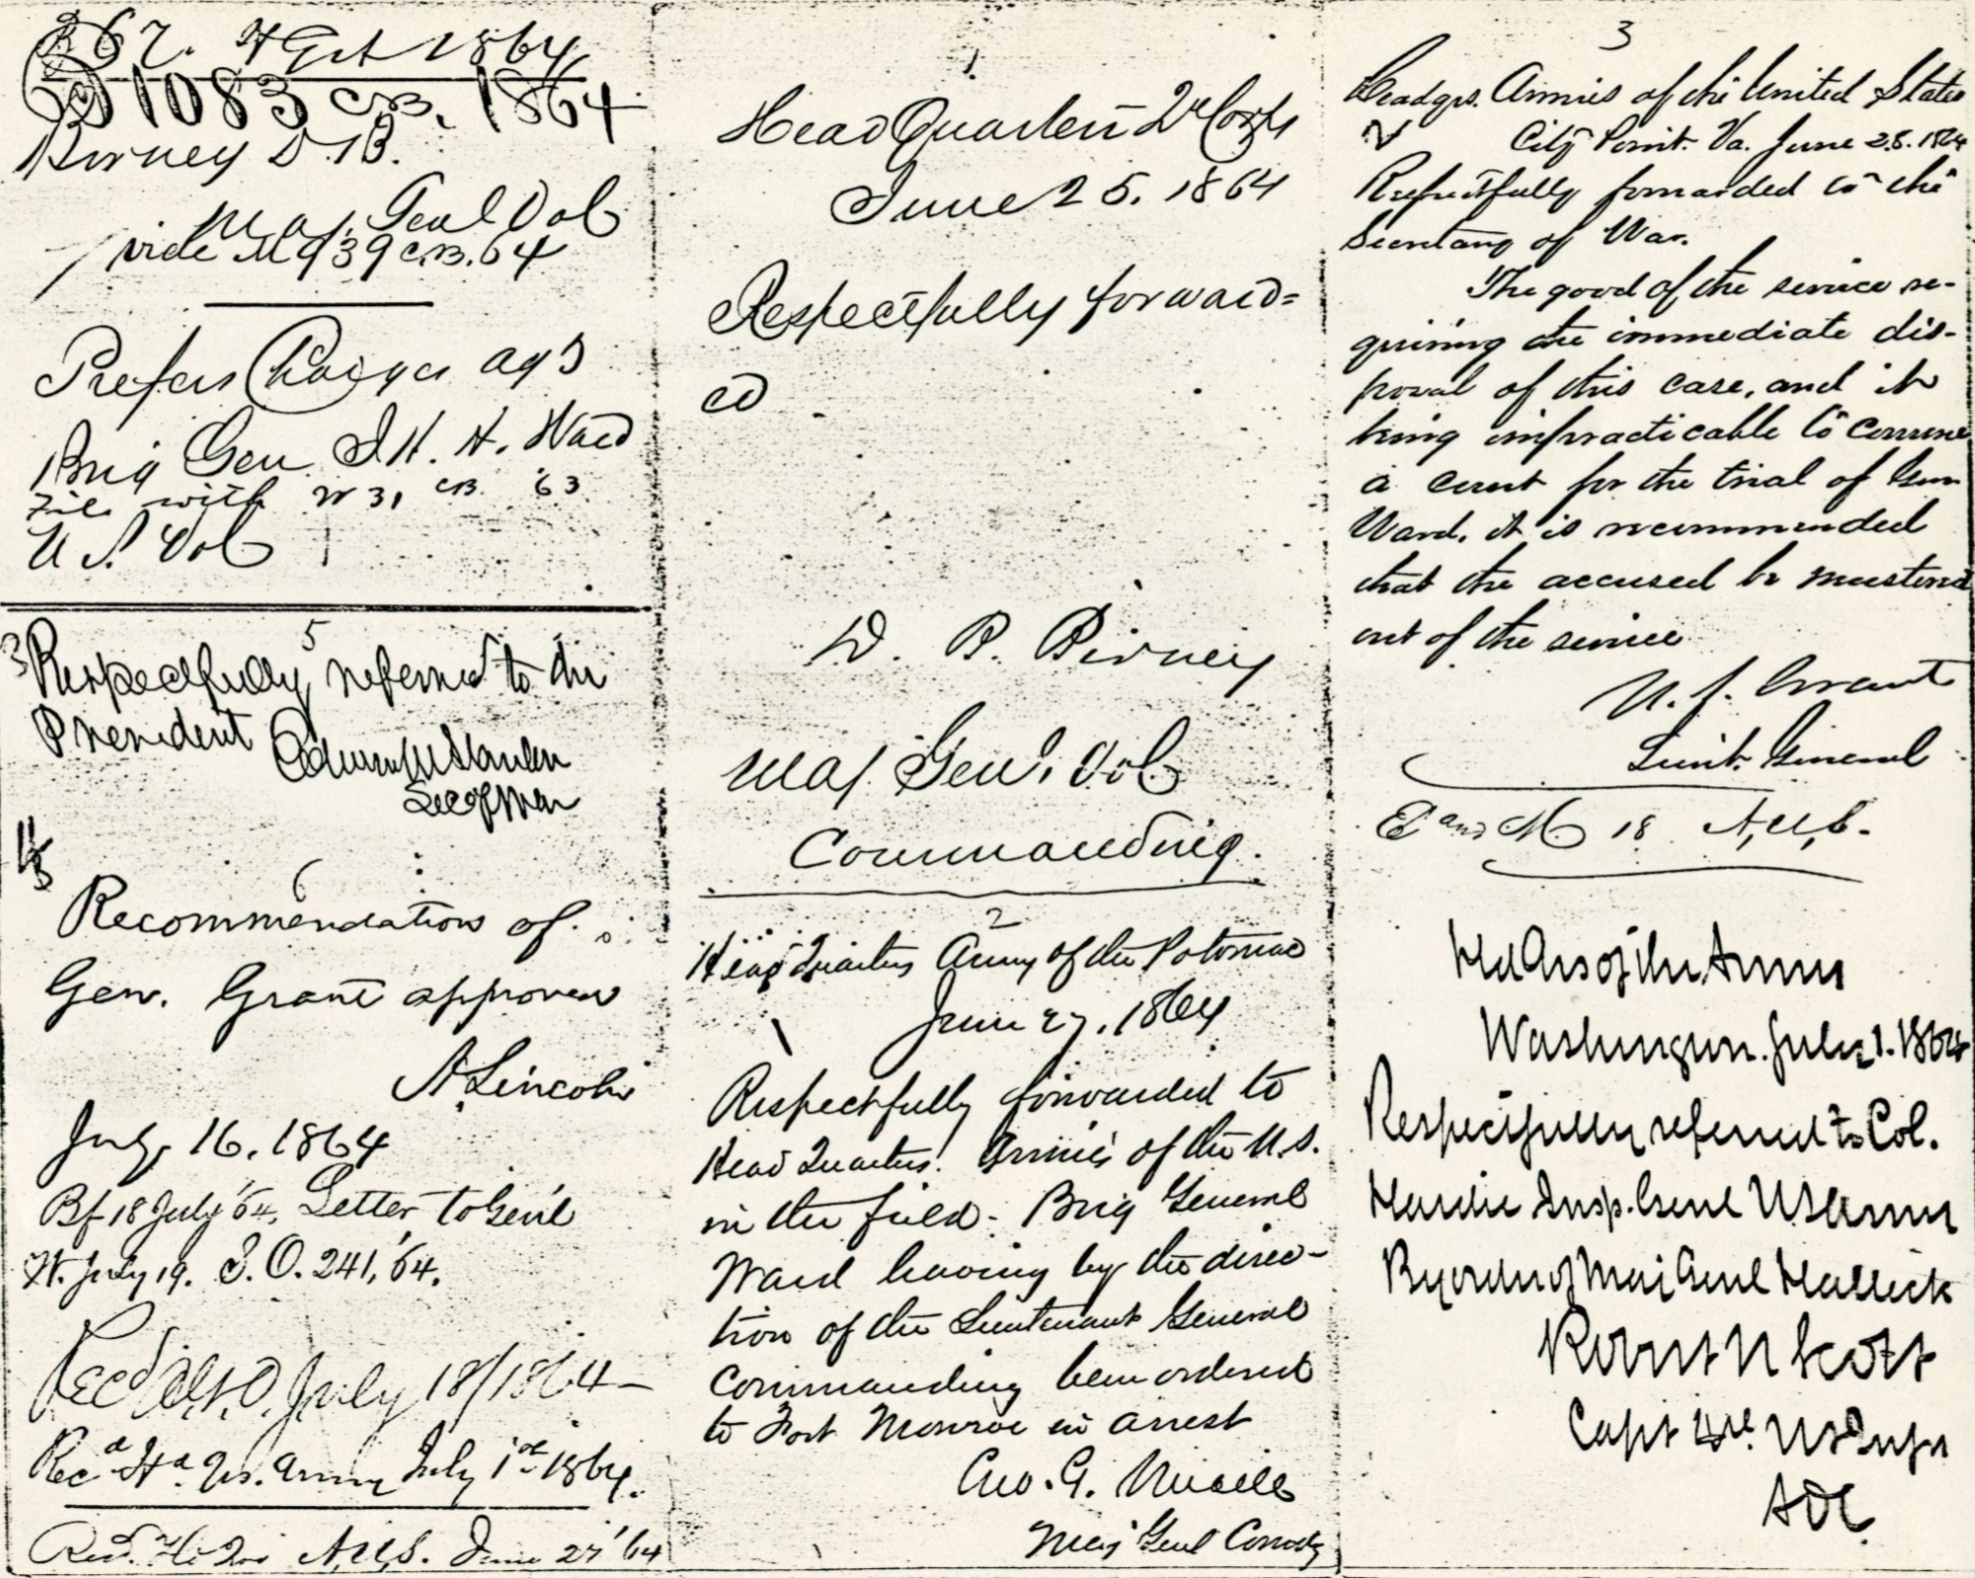 B 67. H Qrt 1864
B 1083 C.B. 1864
Birney D. B.
Maj. Genl Vol
vide M 939 C.B. 64
Prefers Charges agst
Brig Gen J. H. H. Ward
File with W 31 C.B. '63
U S. Vol
5
Respectfully referred to the
President
Edwin M Stanton
Sec of War
6
Recommendations of
Gen. Grant approved
A. Lincoln
July 16. 1864
Bf 18 July '64. Letter to Gen'l
W. July 19. S. O. 241, '64.
Recd A.G.O. July 18/1864
Recd Hd Qrs. Army July 1st 1864.
Recd. Hd Qrs A.U.S. June 27 '64
1
Head Quarters 2d Corps
June 25. 1864
Respectfully forward=
ed
D. B. Birney
Maj. Genl. Vol
Commanding.
2
Head Quarters Army of the Potomac
June 27. 1864
Respectfully forwarded to
Head Quarters. Armies of the U.S.
in the field - Brig General
Ward having by the direc-
tion of the Lieutenant General
Commanding been ordered
to Fort Monroe in arrest
Geo. G. Meade
Maj Genl Comdg
3
Headqrs. Armies of the United States
City Point. Va. June 28. 1864
Respectfully forwarded to the
Secretary of War.
The good of the service re-
quiring the immediate dis-
posal of this case, and it
being impracticable to convene
a court for the trial of Gen
Ward, it is recommended
that the accused be mustered
out of the service
U. S. Grant
Lieut. General
E and M 18 A.U.S.
Hd Qrs of the Army
Washington. July 1. 1864
Respectfully referred to Col.
Hardie Insp. Genl U S Army
By order of Maj Genl Halleck
Robert N Scott
Capt 4th. U S Infy
ADC